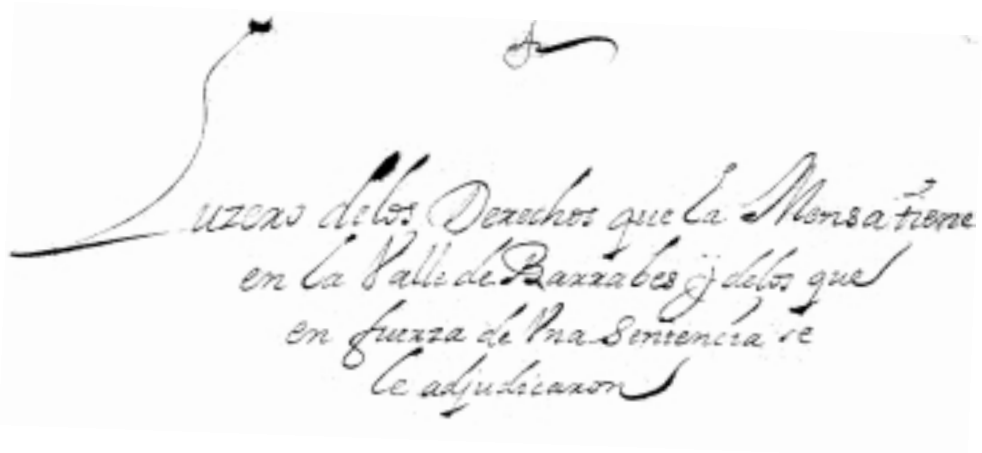 A
Luzero delos Derechos que la Mensa tiene
en la Valle de Barrabes ÿ delos que
en fuerza de Vna Sentencia se
le adjudicaron